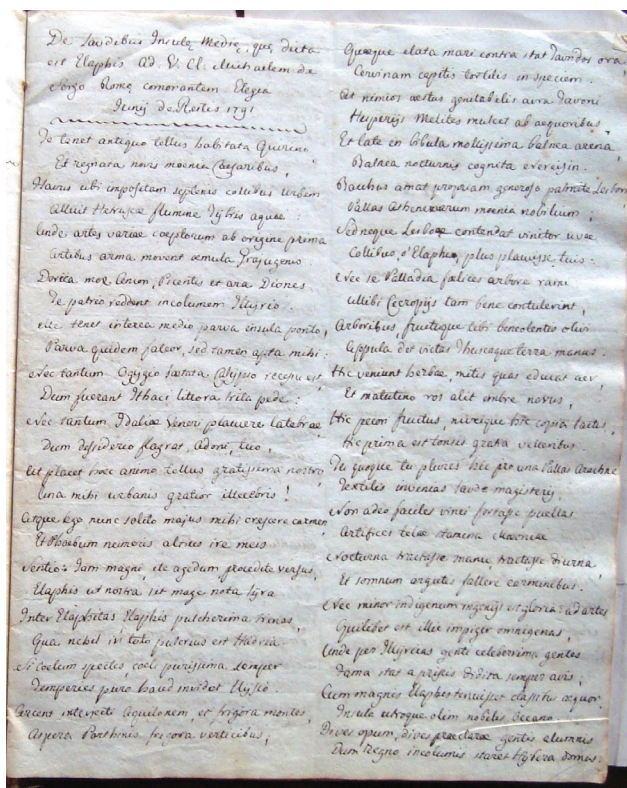 De Laudibus Insulę Medię, quę dicta
est Elaphis Ad V. Cl. Michaelem de
Sorgo Romę comorantem Elegia
Junij de Restis 1791
Te tenet antiquo tellus habitata Quirino,
Et regnata novis moenia Caesaribus,
Maurus ubi impositam septenis collibus Urbem
Alluit Hetruscae flumine Tybris aquae:
Unde artes variae coeptorum ab origine prima
Artibus arma movent aemula
Dorica mox Ancon, Picentis et ara Diones
Te patrio reddent incolumem Illyrio.
Me tenet interea medio parva insula ponto,
Parva quidem fateor, sed tamen apta mihi:
Nec tantum Ogygio laetata Calypso recessu est,
Dum fuerant Ithaci littora trita pede:
Nec tantum Idaliae Veneri placuere latebrae
Dum desiderio flagrat, Adoni, tuo,
Ut placet haec animo tellus gratissima nostro,
Una mihi urbanis gratior illecebris!
Atque ego nunc solito majus mihi crescere carmen
Et Phaebum nemoris altius ire meis
Sentio: Jam magni, ite agedum procedite versus,
Elaphis ut nostra sit mage nota lyra
Inter Elaphitas Elaphis pulcherima trinas,
Qua nihil in toto pulcrius est Hadria.
Si Coelum species, coeli purissima semper
Temperies puro haud invidet Elysio.
Arcent intereciti Aquilonem, et frigora montes,
Aspera Parthinis frigora verticibus,
Quaeque elata mari contra stat Daunidos ora,
Cervinam capitis in speciem.
At nimios aestus genitabilis aura Favoni
Hesperijs Melites mulcet ab aequoribus.
Et late en bibula mollissima balnea arena,
Balnea nocturnis cognita
Bacchus amat propriam generoso palmite Lesbon
Pallas Athenaearum moenia nobilium,
Sed neque Lesboae contendat vinitor uvae
Collibus, o' Elaphen, plus placuisse tuis:
Nec se Palladia foelices arbore rami
ullibi Cecropijs tam bene contulerint,
Arboribus, fructuque tibi beneolentis olivi
Appula det victas Thuscaque terra manus.
Hic veniunt herbae, mitis quas educat aer,
Et matutino ros alit imbre novus,
Hic pecori fructus, niveique hic copia lactis,
Hic prima est tonsis grata
Tu quoque tu plures hic pro una Pallas Arachne
Textilis invenias laude magisterij.
Non adeo faciles vinci fortasse puellas
Artifices telae stamina
Nocturna tractasse manu tractasse diurna,
Et somnum argutis fallere carminibus.
Nec minor indigenum ingenijs est gloria: ad artes
Quilibet est illic impiger omnigenas,
Unde per Illyricas genti celeberrima gentes
Fama stat a priscis dedita semper avis;
Cum magnis Elaphes tenuisset classibus aequor,
Insula utroque olim nobilis Oceano.
Dives opum, dives praeclarae gentis alumnis
Dum regno incolumis staret Hybera domus: